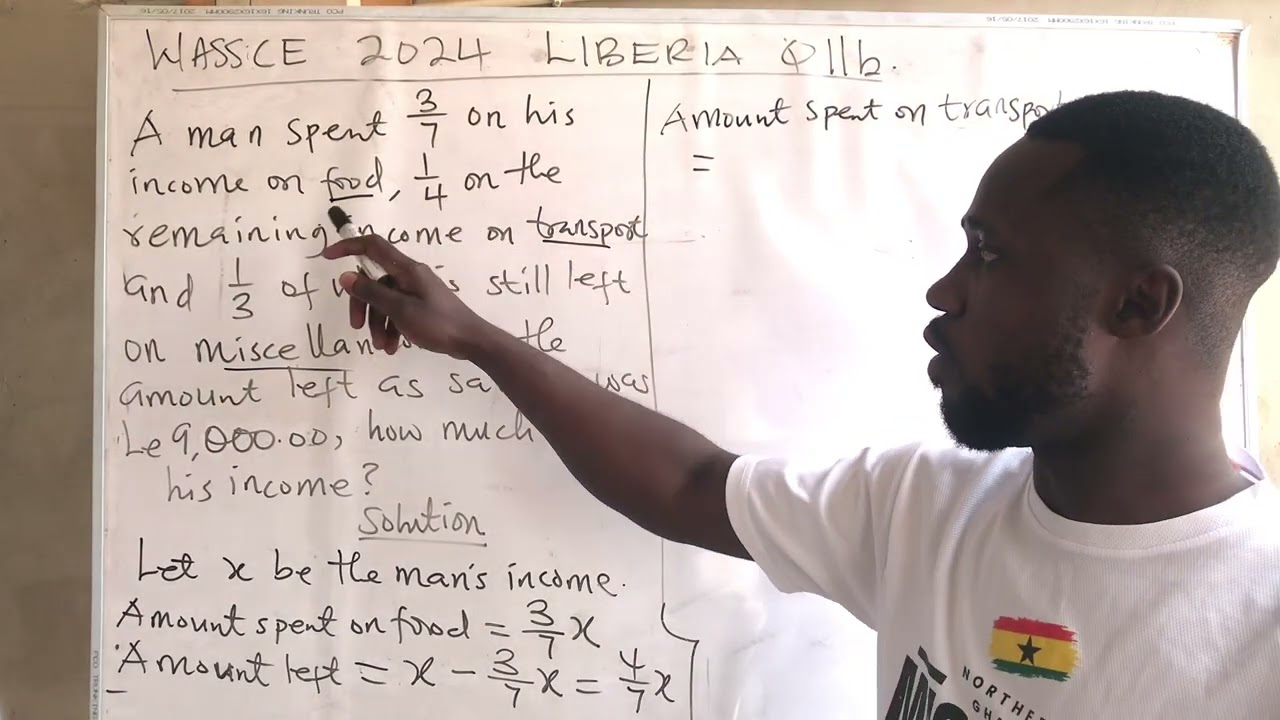 WASSCE 2024 LIBERIA Q11b.
A man spent 3/7 on his
income on food, 1/4 on the
remaining income on transport
and 1/3 of still left
on miscellan the
amount left as was
Le 9,000.00, how much
his income?
Solution
Let x be the man's income.
Amount spent on food = 3/7 x
Amount left = x - 3/7 x = 4/7 x
Amount spent on transport
=
NORTHE
GH